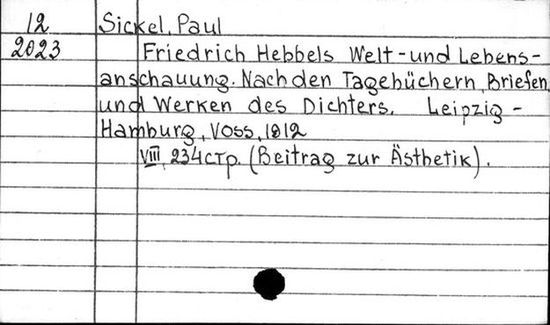 12 Sickel, Paul
2023 Friedrich Hebbels Welt-und Lebens-
anschauung. Nach den Tagebüchern, Briefen
und Werken des Dichters. Leipzig-
Hamburg, Voss, 1912
VIII, 234 стр. (Beitrag zur Ästhetik).